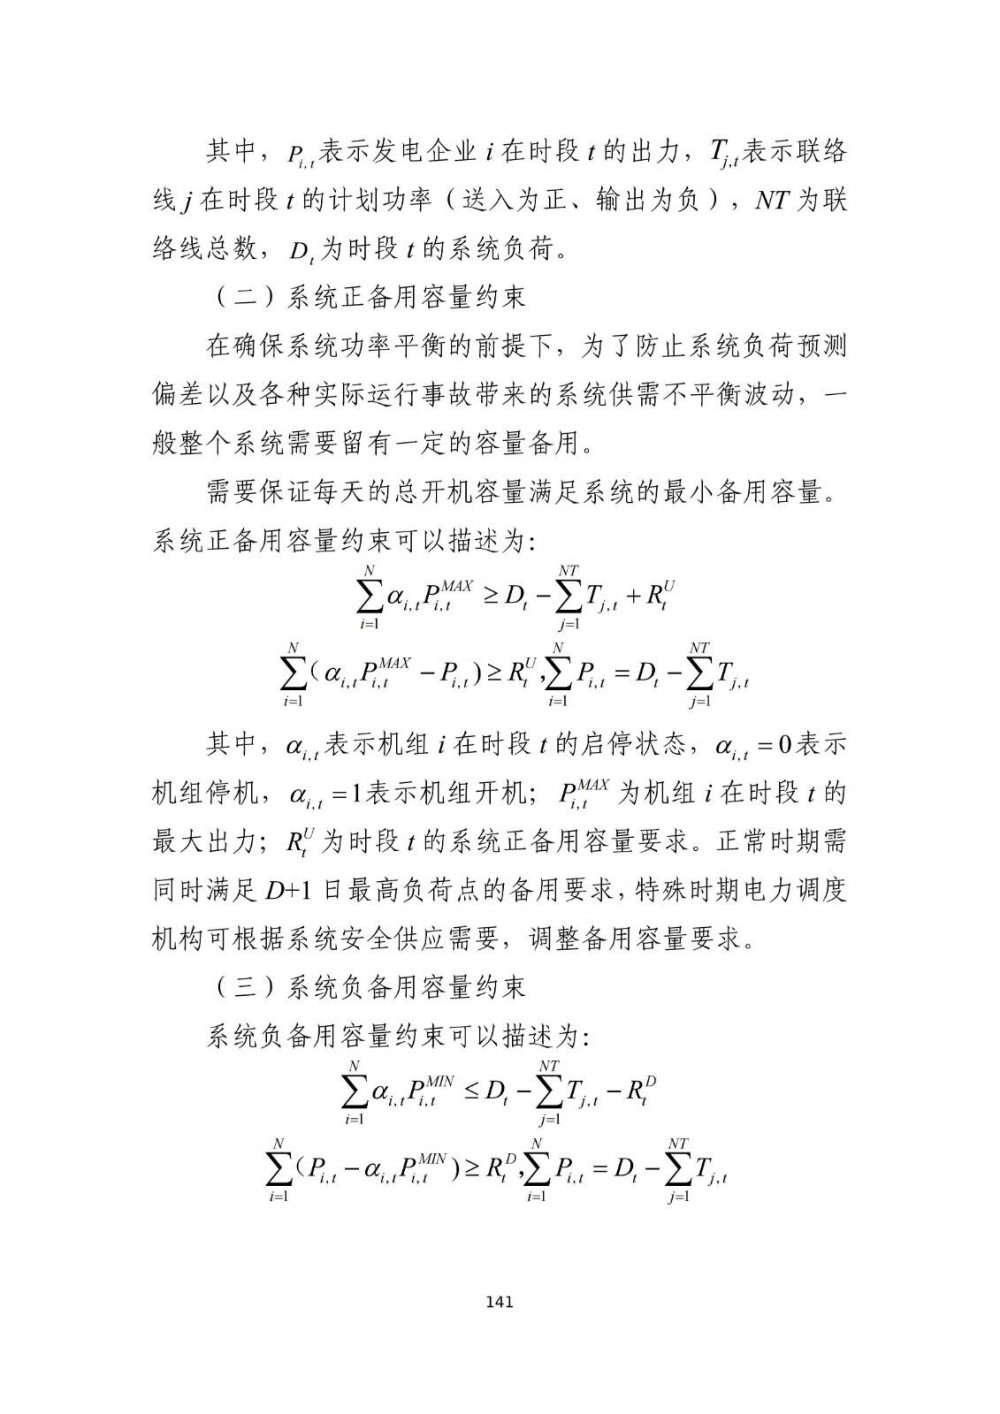 其中，P_{i,t}表示发电企业 i 在时段 t 的出力，T_{j,t}表示联络
线 j 在时段 t 的计划功率（送入为正、输出为负），NT 为联
络线总数，D_t 为时段 t 的系统负荷。
（二）系统正备用容量约束
在确保系统功率平衡的前提下，为了防止系统负荷预测
偏差以及各种实际运行事故带来的系统供需不平衡波动，一
般整个系统需要留有一定的容量备用。
需要保证每天的总开机容量满足系统的最小备用容量。
系统正备用容量约束可以描述为：
\sum_{i=1}^{N} α_{i,t} P_{i,t}^{MAX} ≥ D_t − \sum_{j=1}^{NT} T_{j,t} + R_t^U
\sum_{i=1}^{N} (α_{i,t} P_{i,t}^{MAX} − P_{i,t}) ≥ R_t^U, \sum_{i=1}^{N} P_{i,t} = D_t − \sum_{j=1}^{NT} T_{j,t}
其中，α_{i,t} 表示机组 i 在时段 t 的启停状态，α_{i,t} = 0表示
机组停机，α_{i,t} = 1表示机组开机；P_{i,t}^{MAX} 为机组 i 在时段 t 的
最大出力；R_t^U 为时段 t 的系统正备用容量要求。正常时期需
同时满足 D+1 日最高负荷点的备用要求，特殊时期电力调度
机构可根据系统安全供应需要，调整备用容量要求。
（三）系统负备用容量约束
系统负备用容量约束可以描述为：
\sum_{i=1}^{N} α_{i,t} P_{i,t}^{MIN} ≤ D_t − \sum_{j=1}^{NT} T_{j,t} − R_t^D
\sum_{i=1}^{N} (P_{i,t} − α_{i,t} P_{i,t}^{MIN}) ≥ R_t^D, \sum_{i=1}^{N} P_{i,t} = D_t − \sum_{j=1}^{NT} T_{j,t}
141